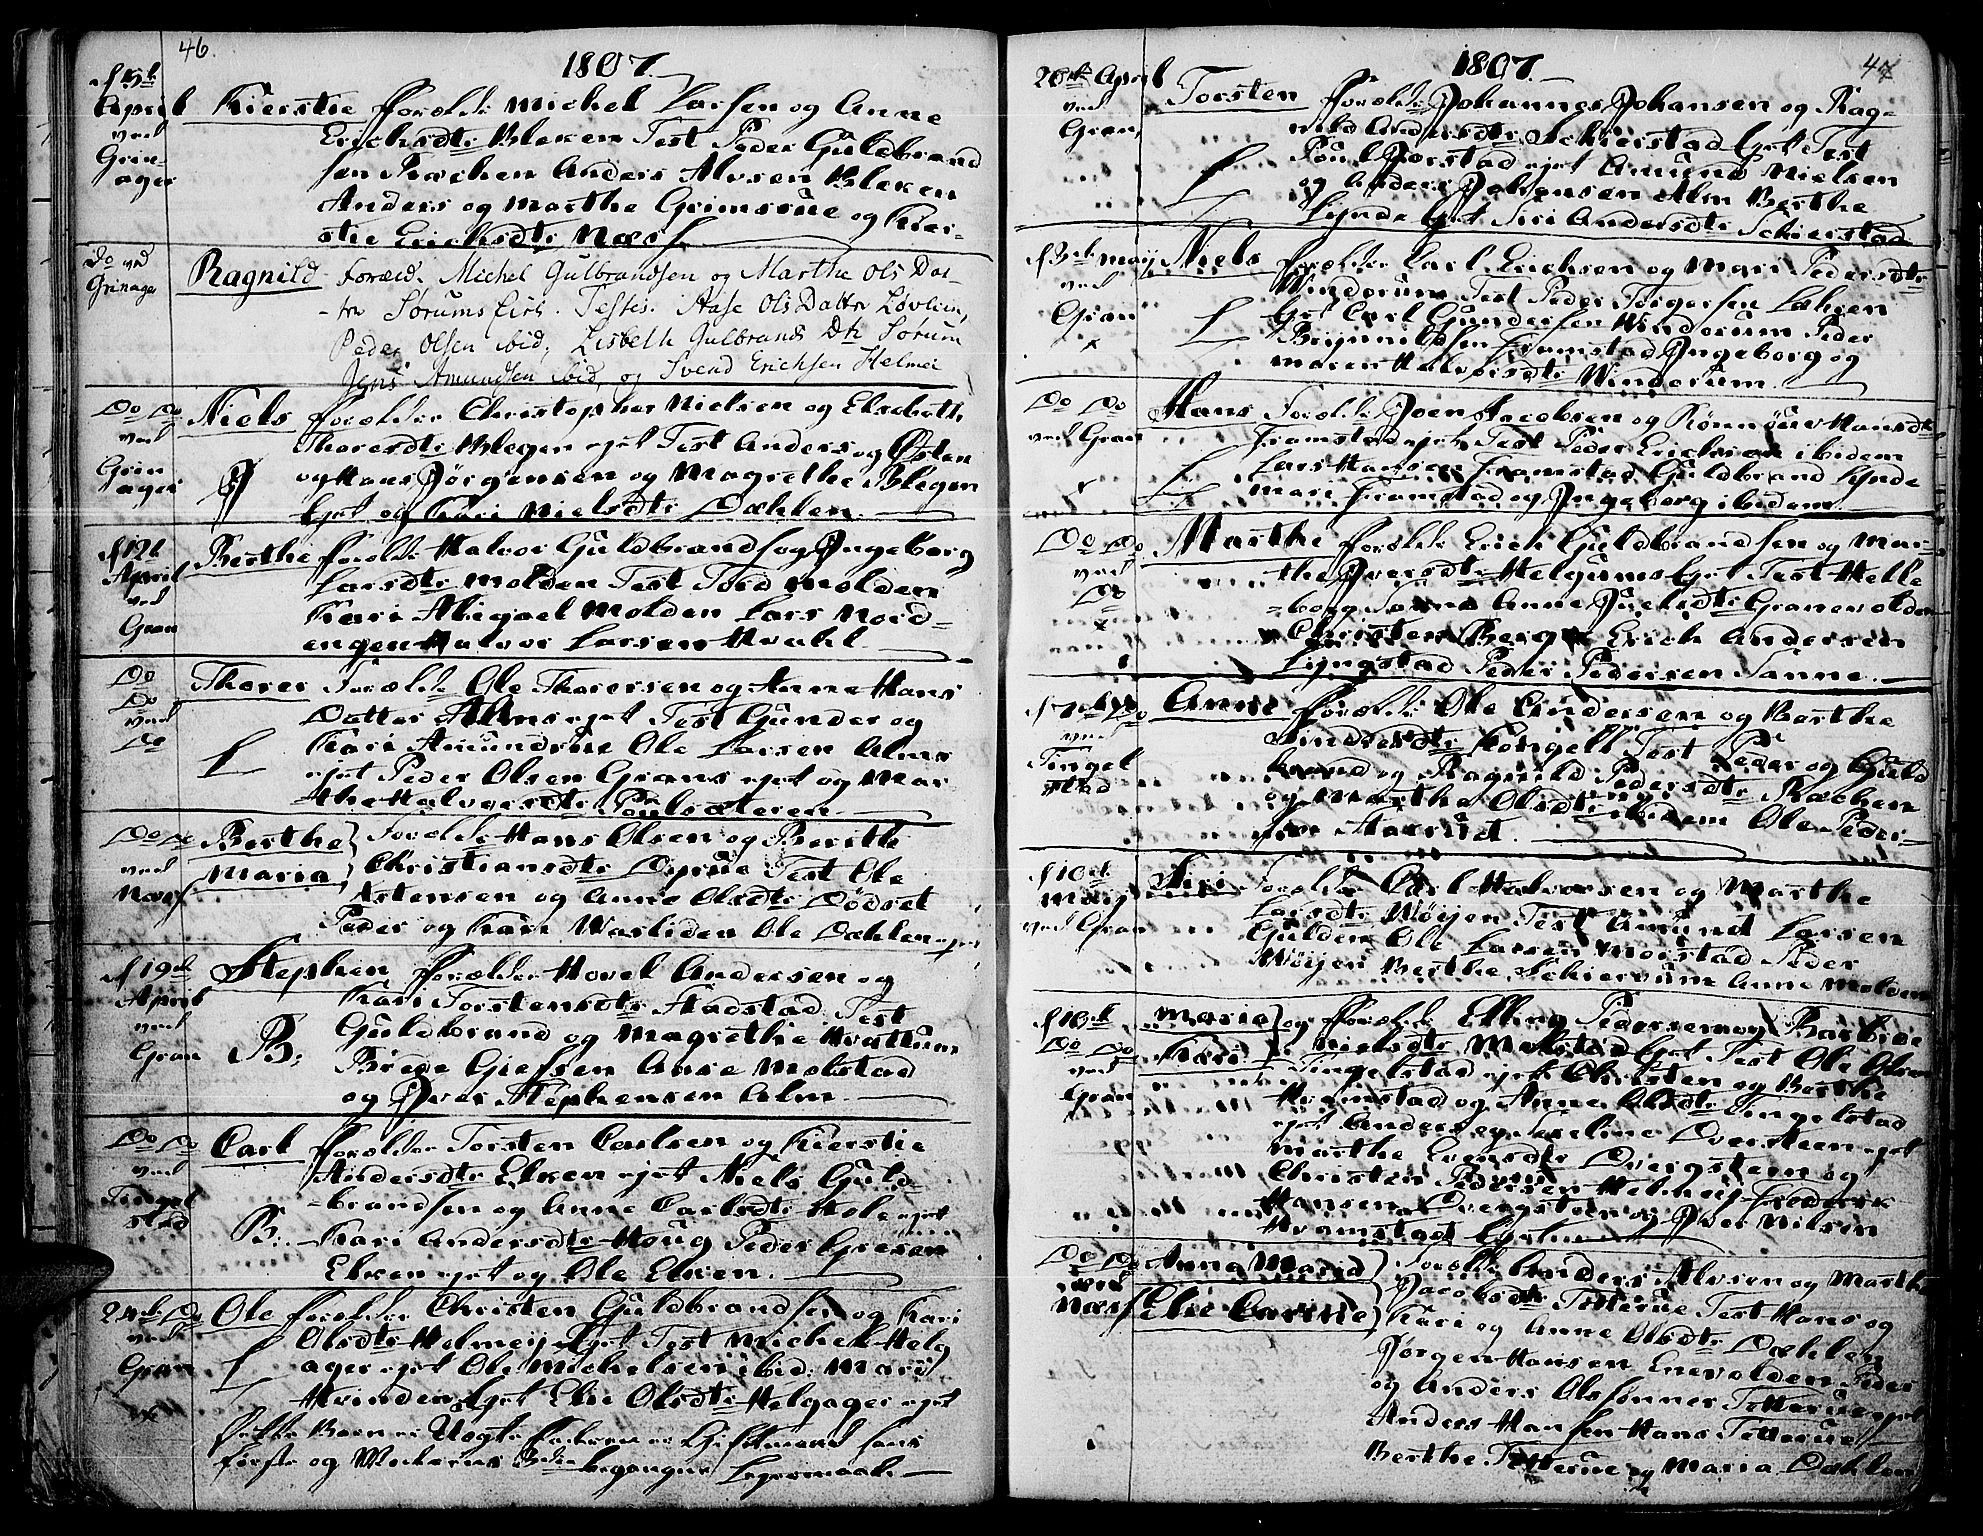 46.
1807.
d 5t April ved Grinager
Kierstie Forældr: Michel Larsen og Anne
Erichsdtr Bleken Test Peder Guldbrand
sen Kochen Anders Alvsen Bleken
Anders og Marthe Grimsrue og Kier-
stie Erichsdtr Næss
Do ved Grinager
Ragnild Foræld. Michel Gulbrandsen og Marthe Ols Dat-
ter Sørumseie. Testes. Aase OlsDatter Løvlien,
Peder Olsen ibid, Lisbeth Gulbrands Dtr Sørum
Jens Amundsen ibid, og Svend Erichsen Helmei
Do Do ved Grinager
Niels Forældre Christopher Nielsen og Elsebeth
Thoresdtr Blegen ejet Test Anders og Østen
og Hans Jørgensen og Magrethe Blegen
Ejet og Kari Nielsdtr Dæhlen.
d 12t April ved Gran
Berthe Forældr Halvor Guldbrandse og Ingeborg
Larsdtr Molden Test Tord Molden
Kari Abigael Molden Lars Nord-
engen Halvor Larsen Hvahl
Do Do ved Do
Thorer Forældr Ole Thorersen og Anne Hans
Datter Alms ejet Test Gunder og
Kari Amundrue Ole Larsen Alms
ejet Peder Olsen Grans ejet og Mar
the Halvorsdtr Paulsæteren
Do Do ved Næss
Berthe Maria Forældr Hans Olsen og Berithe
Christiansdtr Dyrue Test Ole
Astensen og Anne Olsdtr Dødset
Peder og Kari Wasliden Ole Dæhlen ejet
d 19d April ved Gran
Stephen Forældre Hovel Andersen og
Kari Torstensdtr Stadstad Test
B: Guldbrand og Magrethe Hvattum
Brede Giefsen Anne Molstad
og Iver Stephensen Alm
Do Do ved Tingelstad
Carl Forældre Torsten Carlsen og Kierstie
Andersdtr Elken ejet Niels Guld-
brandsen og Anne Carlsdtr Hole ejet
B. Kari Andersdtr Houg Peder Gresen
Elken ejet og Ole Elken.
24de Do ved Gran
Ole Forældre Christen Guldbrandsen og Kari
Olsdtr Helmeij Ejet Test Michel Helg
ager ejet Ole Michelsen ibid: Mari
Hvinden Ejet Elie Olsdtr Helgager ejet
Dette Barn er Uægte Faderen er Giftmand hans
første og Moderens Begangne Leiermaal
1807.
47
26de April ved Gran
Torsten Forældr Johannes Johansen og Rag-
nild Andersdtr Schierstad Ejet Test
Poul Jorstad ejet Amund Nielsen
og Anders Johansen Alm Berthe
Lynde Ejet Siri Andersdtr Schierstad
d 3de Maij ved Gran
Niels Forældre Carl Erichsen og Mari Pedersdtr
Windorum Test Peder Torgersen Læken
Ejet Carl Gundersen Windorum Peder
Brynnildsen Framstad Ingeborg og
Maren Halvorsdtr Windorum.
Do Do ved Gran
Hans Forældr Joen Jacobsen og Rønnouv Hansdtr
Framstad ejet Test Peder Erichsen ibidem
Lars Hansen Framstad Guldbrand Lynde
Mari Framstad og Ingeborg ibidem.
Do Do ved Do
Marthe Forældr Erich Guldbrandsen og Mar-
the Iversdtr Helgums Ejet Test Helle
borg Sanne Anne Juelsdtr Granevolden
Christen Berg Erich Andersen
Lyngstad Peder Pedersen Sanne.
d 7de Do ved Tingelstad
Anne Forældr Ole Andersen og Berthe
Sindresdtr Kongell Test Peder og Guld
brand og Ragnild Pedersdtr Rækken
og Marthe Olsdtr ibidem Ole Peder-
sen Staxrud.
d 10de Maij ved Gran
Siri Forældre Carl Halvorsen og Marthe
Larsdtr Wøijen Test Amund Larsen
Gulden Ole Larsen Morstad Peder
Wøijen Berthe Schiervum Anne Molden
d 16de Do Do ved Gran
Maria og Kari Forældr Elling Pedersen og Barbroe
Nielsdtr Molstad Ejet Test Ole Olsen
Tingelstad ejet Christen og Berthe
Hvamstad og Anne Olsdtr Tingelstad
ejet Anders og Tereline Dversteen ejet
Marthe Evensdtr Dvergsteen og
Christen Pedersen Helmeij Frederik
Hansen Dvergsteen og Iver Nilsen
Hvamstad Ejet
Do Do ved Næss
Anna Maria Elie Carine Forældr Anders Alvsen og Marthe
Jacobsdtr Tetterue Test Hans og
Kari og Anne Olsdtr Dæhlen
Jørgen Hansen Enevolden Peder
og Anders Olssønner Tetterue ejet
Anders Hansen Hans Tetterue
Berthe Tetterue og Maria Dæhlen